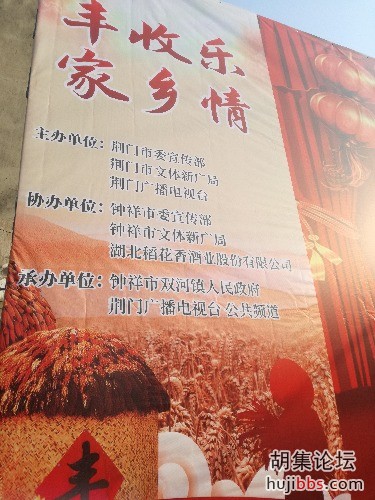 丰收乐
家乡情
主办单位：荆门市委宣传部
荆门市文体新广局
荆门广播电视台
协办单位：钟祥市委宣传部
钟祥市文体新广局
湖北稻花香酒业股份有限公司
承办单位：钟祥市双河镇人民政府
荆门广播电视台 公共频道
丰
胡集论坛
hujibbs.com